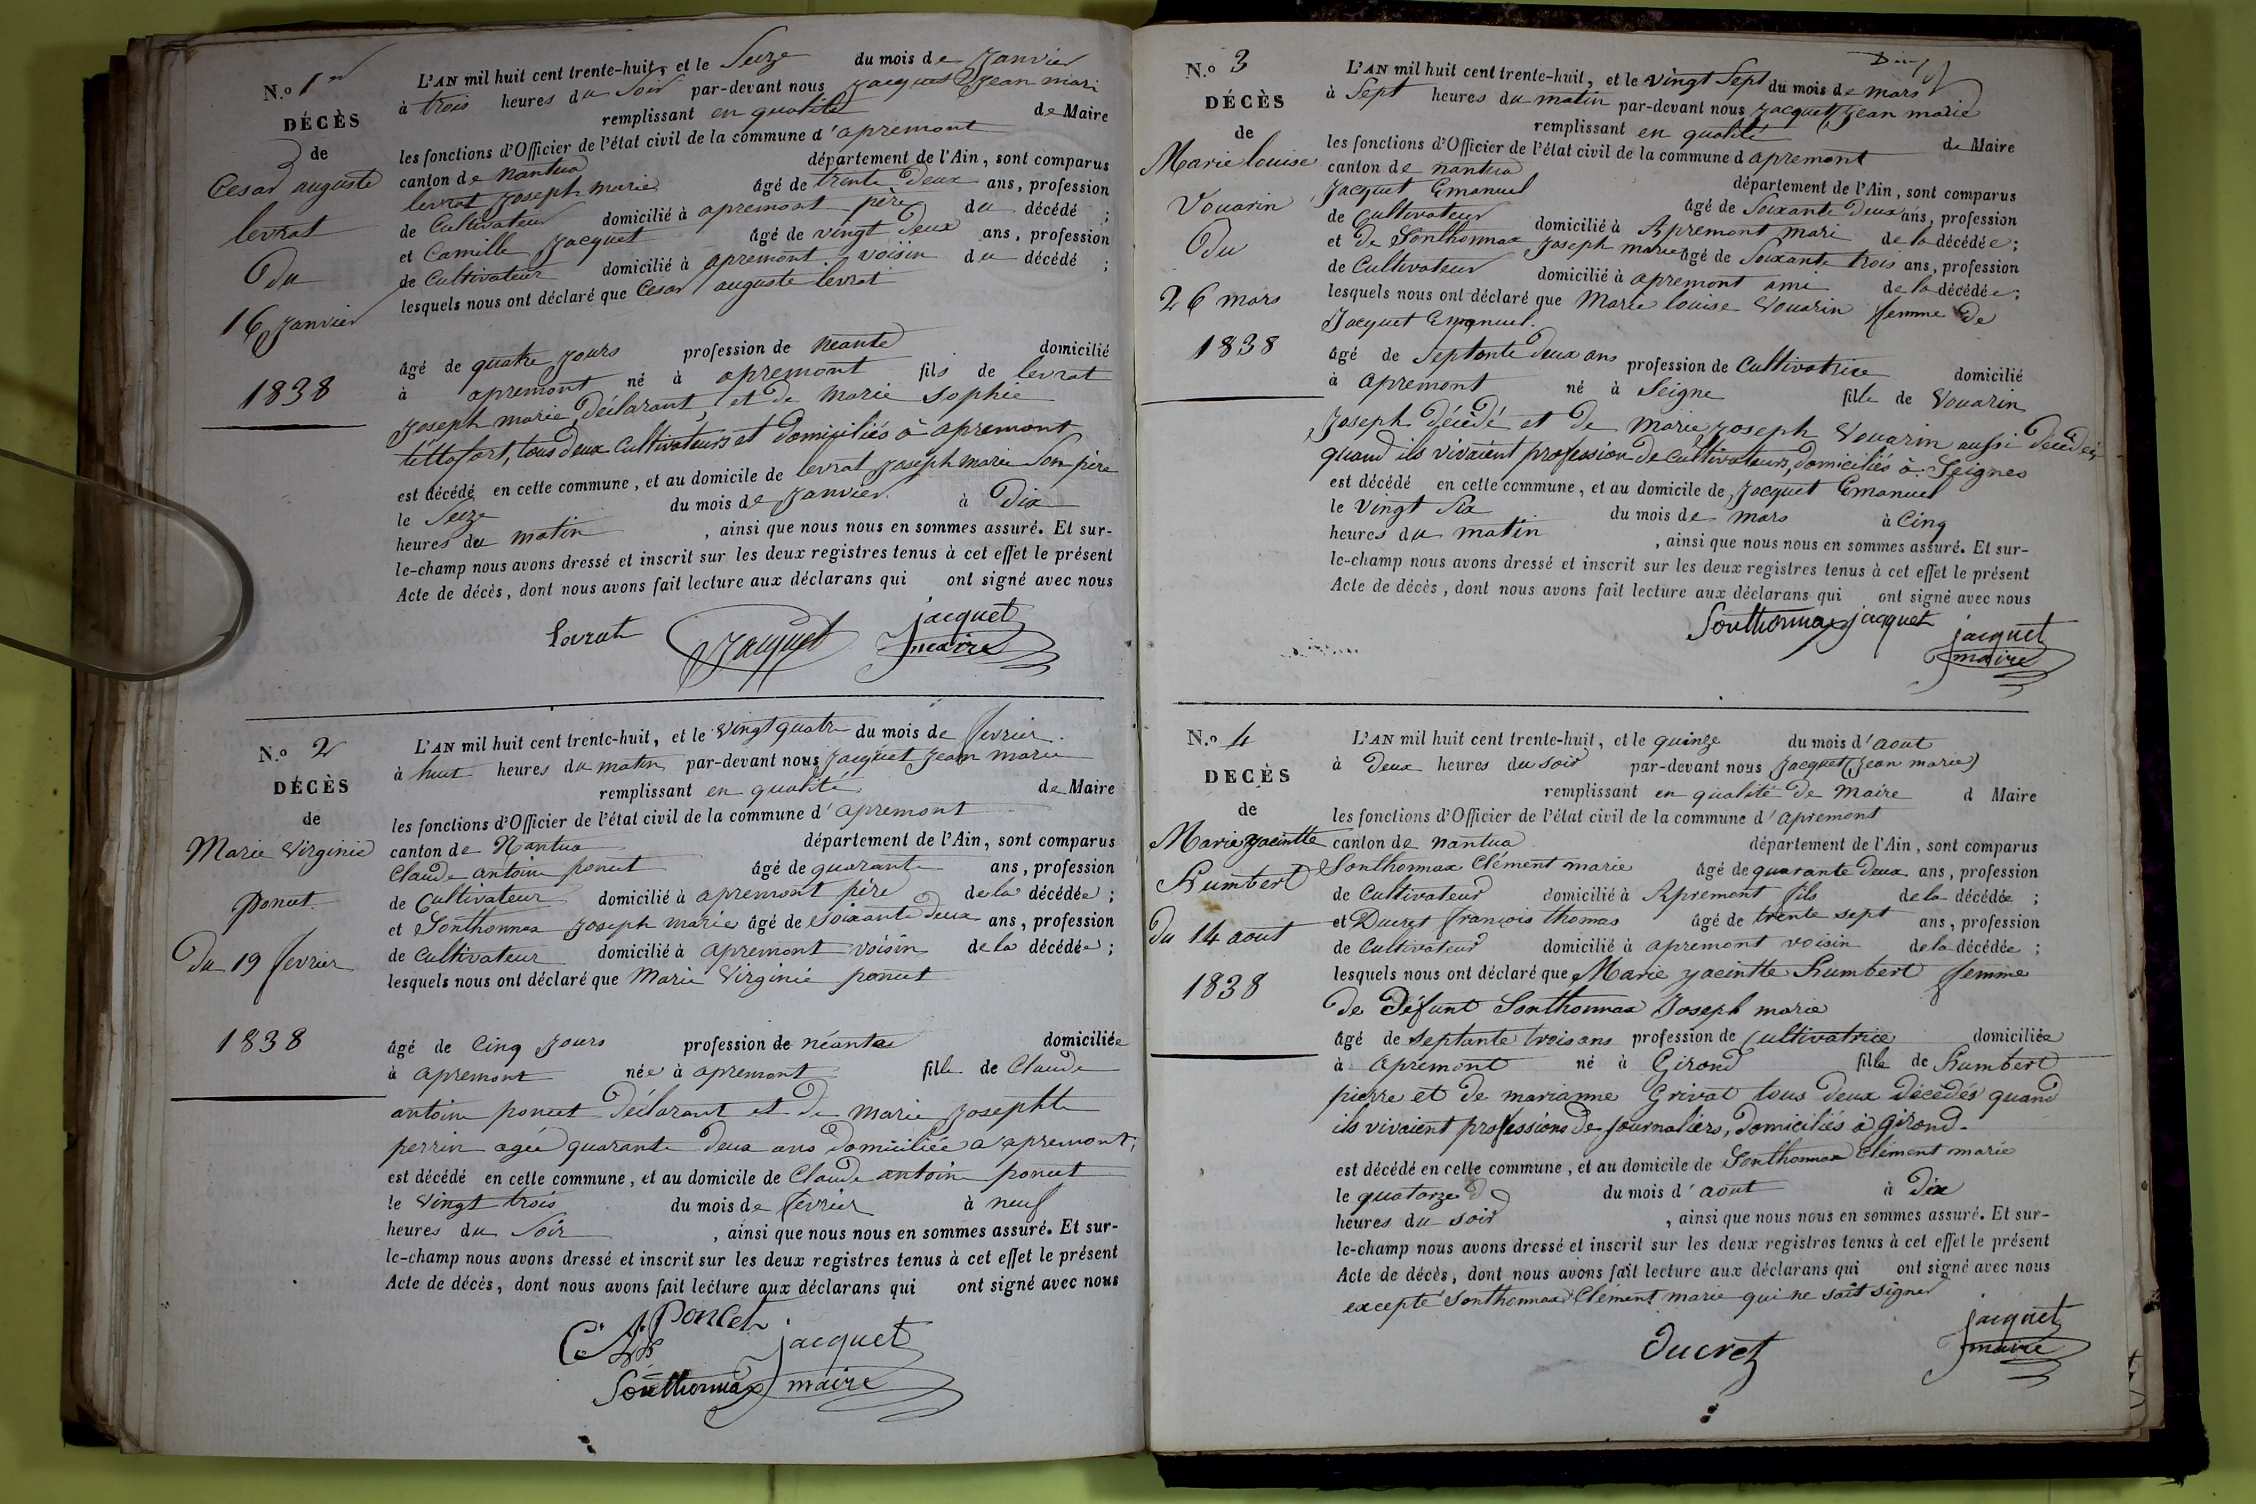 N.o 1er
DÉCÈS
de
Cesar auguste
levrat
Du
16 Janvier
1838
L'AN mil huit cent trente-huit, et le Seize du mois de Janvier
à trois heures du Soir par-devant nous Jacquet Jean mari
remplissant en qualité de Maire
les fonctions d'Officier de l'état civil de la commune d'apremont
canton de nantua département de l'Ain, sont comparus
levrat Joseph marie âgé de trente deux ans, profession
de Cultivateur domicilié à apremont père du décédé ;
et Camille Jacquet âgé de vingt deux ans, profession
de Cultivateur domicilié à apremont voisin du décédé ;
lesquels nous ont déclaré que Cesar auguste levrat
âgé de quatre jours profession de neante domicilié
à apremont né à apremont fils de levrat
Joseph marie, déclarant, et de Marie Sophie
, tous deux Cultivateurs et domiciliés à apremont
est décédé en cette commune, et au domicile de levrat Joseph marie Son père
le Seize du mois de Janvier à Dix
heures du matin , ainsi que nous nous en sommes assuré. Et sur-
le-champ nous avons dressé et inscrit sur les deux registres tenus à cet effet le présent
Acte de décès, dont nous avons fait lecture aux déclarans qui ont signé avec nous
Levrat Jacquet jacquet
maire
N.o 2
DÉCÈS
de
Marie Virginie
poncet
Du 19 fevrier
1838
L'AN mil huit cent trente-huit, et le vingt quatre du mois de fevrier
à huit heures du matin par-devant nous Jacquet Jean marie
remplissant en qualité de Maire
les fonctions d'Officier de l'état civil de la commune d'apremont
canton de Nantua département de l'Ain, sont comparus
Claude antoine poncet âgé de quarante ans, profession
de Cultivateur domicilié à apremont père de la décédée ;
et Sonthonnax Joseph marie âgé de Soixante deux ans, profession
de Cultivateur domicilié à apremont voisin de la décédée ;
lesquels nous ont déclaré que Marie Virginie poncet
âgé de Cinq Jours profession de néante domiciliée
à apremont née à apremont fille de Claude
antoine poncet Déclarant et de marie Josephte
perrin agée quarante deux ans domiciliée a apremont,
est décédé en cette commune, et au domicile de Claude antoine poncet
le Vingt trois du mois de fevrier à neuf
heures du Soir , ainsi que nous nous en sommes assuré. Et sur-
le-champ nous avons dressé et inscrit sur les deux registres tenus à cet effet le présent
Acte de décès, dont nous avons fait lecture aux déclarans qui ont signé avec nous
Poncet jacquet
Sonthonnax maire
N.o 3
DÉCÈS
de
Marie louise
Vouarin
Du
26 mars
1838
L'AN mil huit cent trente-huit, et le vingt Sept du mois de mars
à Sept heures du matin par-devant nous Jacquet Jean marie
remplissant en qualité de Maire
les fonctions d'Officier de l'état civil de la commune d apremont
canton de nantua département de l'Ain, sont comparus
Jacquet Emanuel âgé de Soixante Deux ans, profession
de Cultivateur domicilié à Apremont mari de la décédée ;
et de Sonthonnax Joseph marie âgé de Soixante trois ans, profession
de Cultivateur domicilié à apremont ami de la décédée ;
lesquels nous ont déclaré que Marie louise Vouarin femme de
Jacquet Emanuel.
âgé de Septante Deux ans profession de Cultivatrice domicilié
à apremont né à Seigne fille de Vouarin
Joseph décédé et de Marie Joseph Vouarin aussi décédée,
quand ils vivaient profession de Cultivateurs, domiciliés à Seignes
est décédé en cette commune, et au domicile de Jacquet Emanuel
le Vingt Six du mois de mars à Cinq
heures du matin , ainsi que nous nous en sommes assuré. Et sur-
le-champ nous avons dressé et inscrit sur les deux registres tenus à cet effet le présent
Acte de décès, dont nous avons fait lecture aux déclarans qui ont signé avec nous
Sonthonnax jacquet jacquet
maire
N.o 4
DECÈS
de
Marie yacintte
humbert
du 14 aout
1838
L'AN mil huit cent trente-huit, et le quinze du mois d'aout
à Deux heures du soir par-devant nous Jacquet (Jean marie)
remplissant en qualité de maire d Maire
les fonctions d'Officier de l'état civil de la commune d'apremont
canton de nantua département de l'Ain, sont comparus
Sonthonnax Clément marie âgé de quarante deux ans, profession
de Cultivateur domicilié à Apremont fils de la décédée ;
et Ducret françois thomas âgé de trente sept ans, profession
de Cultivateur domicilié à apremont voisin de la décédée ;
lesquels nous ont déclaré que Marie yacintte humbert femme
de Défunt Sonthonnax Joseph marie
âgé de Septante trois ans profession de Cultivatrice domiciliée
à Apremont né à Girond fille de humbert
pierre et de marianne Grivat tous deux décédés quand
ils vivaient professions de Journaliers, domiciliés à Girond.
est décédé en cette commune, et au domicile de Sonthonnax Clément marie
le quatorze du mois d'aout à Dix
heures du soir , ainsi que nous nous en sommes assuré. Et sur-
le-champ nous avons dressé et inscrit sur les deux registres tenus à cet effet le présent
Acte de décès, dont nous avons fait lecture aux déclarans qui ont signé avec nous
excepté Sonthonnax Clément marie qui ne sait signer
Ducret jacquet
maire